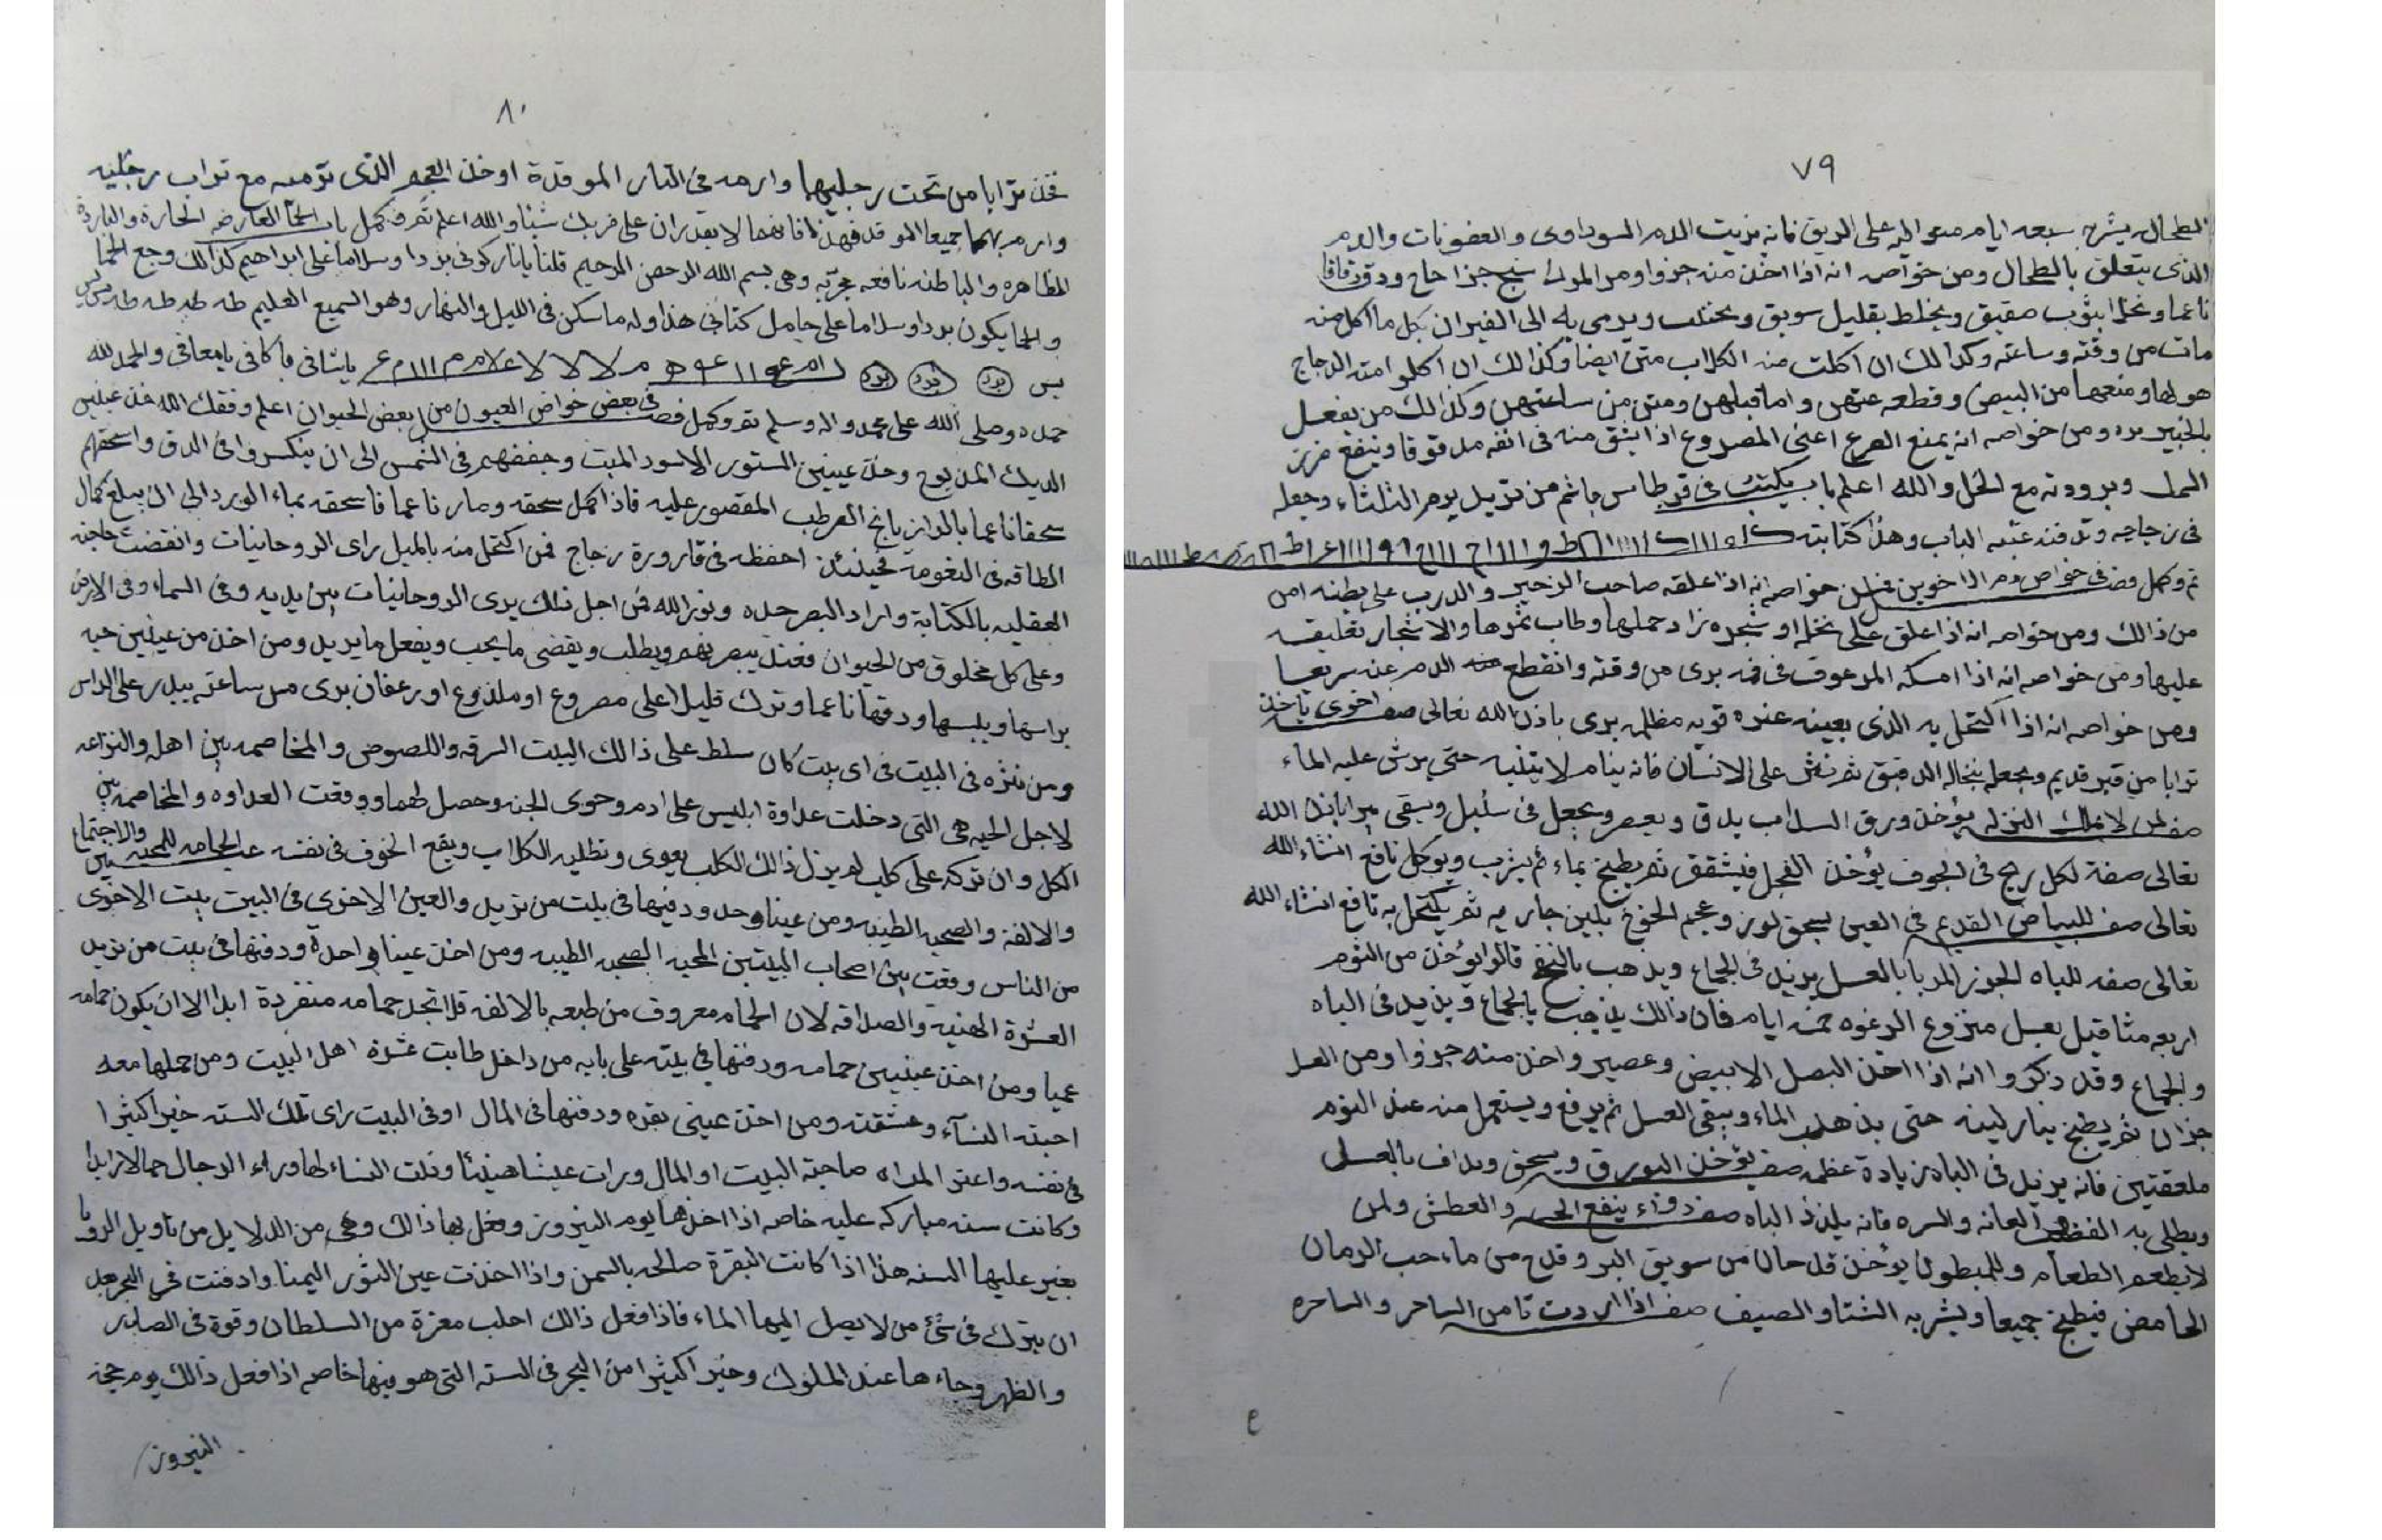 ٧٩
الطحال يشرح سبعه ايام متواليه على الريق فانه يزيت الدم السوداوى والعفونات والدم
الذى يتعلق بالطحال ومن خواصه انه اذا اخذ منه جزوا ومن جزا ودق دقاقا
ناعما ونخل بثوب صفيق ويخلط بقليل سويق ويرمى به الى الفيران بكل ما اكل منه
مات من وقته وساعته وكذالك ان اكلت منه الكلاب متن ايضا وكذالك ان اكلوا منه الدجاج
هولها ومنعها من البيض وقطعه عنهن واما قبلهن ومتن من ساعتهن وكذالك من يفعل
بالخبير ومن خواصه انه يمنع الصرع اعنى المصروع اذا منه فى انفه مدقوقا وينفع
وبرودته مع الخل والله اعلم باب يكتب فى قرطاس باسم من تريد يوم الثلثاء وجعله
فى زجاجه وتدفنه عتبه الباب وهذا كتابته
تم وكمل فصل فى خواص دم الاخوين فمن خواصه انه اذا علقه صاحب الزحير والدرب على بطنه امن
من ذالك ومن خواصه انه اذا علق على نخله او شجره زاد حملها وطاب ثمرها والاشجار تعليقه
عليها ومن خواصه انه اذا امسكه المرعوف فى فمه برى من وقته وانقطع عنه الدم عنه سريعا
ومن خواصه انه اذا اكتحل به الذى بعينه عنده قوبه مظلمه برى باذن الله تعالى صفه اخرى تاخذ
ترابا من قبر قديم ويجعله بنخاله الدقيق ثم نفش على الانسان فانه ينام لا ينتبه حتى يرش عليه الماء
صفه لمن النزله يؤخذ ورق السداب يدق ويعصر ويجعل فى ويسقى يبرا باذن الله
تعالى صفة لكل ريح فى الجوف يؤخذ الفجل فيشقق ثم يطبخ بماء ثم يشرب ويوكل نافع انشاء الله
تعالى صفه للبياض القديم فى العين يسحق لوز وعجم الخوخ بلبن جاريه ثم يكتحل به نافع انشاء الله
تعالى صفه للباه الجوز المربا بالعسل يزيد فى الجماع ويذهب قالوا يؤخذ من الثوم
اربعه مثاقيل بعسل منزوع الرغوه خمسه ايام فان ذالك بالجماع ويزيد فى الباه
والجماع وقد ذكروا انه اذا اخذ البصل الابيض وعصير واخذ منه جزوا ومن العسل
جزا ثم يطبخ بنار لينه حتى يذهب الماء ويبقى العسل ثم يرفع ويستعمل منه عند النوم
ملعقتين فانه يزيد فى الباه زيادة عظيمه صفه يؤخذ البورق ويسحق ويداف بالعسل
ويطلى به العانه والسره فانه يلذذ الباه صفه دواء ينفع الحر والعطش ولمن
لا يطعم الطعام وللمبطون يؤخذ قدحان من سويق البر وقدح من ماء حب الرمان
الحامض فيطبخ جميعا ويشربه الشتا والصيف صفه اذا اردت تامن الساحر والساحره
٨٠
فخذ ترابا من تحت رجليها وارمه فى النار الموقدة او خذ الذى ترميه مع تراب رجليه
وارم بهما جميعا الموقد فانهما لا يقدران على ضربك شيئا والله اعلم تم وكمل باب الحما العارضه الحارة والباردة
الظاهره والباطنه نافعه مجربه وهى بسم الله الرحمن الرحيم قلنا يا نار كونى بردا وسلاما على ابراهيم كذالك وجع الحما
والحما يكون بردا وسلاما على حامل كتابى هذا وله ما سكن فى الليل والنهار وهو السميع العليم طه طه طه طه
يس يا شافى يا كافى يا معافى والحمد لله
حمده وصلى الله على محمد واله وسلم تم وكمل فصل فى بعض خواص العيون من بعض الحيوان اعلم وفقك الله خذ عينين
الديك المذبوح وخذ عينين السنور الاسود الميت وجففهم فى الشمس الى ان ينكسروا فى الدق واسحقهم
سحقا ناعما المقصور عليه فاذا كمل سحقه وصار ناعما فاسحقه بماء الورد الى ان يبلغ كمال
الطاقه فى النعومة فحينئذ احفظه فى قارورة زجاج فمن اكتحل منه بالميل راى الروحانيات وانقضت حاجته
العقليه بالكتابة واراد البصر حده ونور الله فمن اجل ذالك يرى الروحانيات بين يديه وفى السماء وفى الارض
وعلى كل مخلوق من الحيوان فعند يبصر بهم ويطلب ويقضى ما يحب ويفعل ما يريد ومن اخذ من عينين حيه
براسها ويبسها ودقها ناعما وترك قليلا على مصروع او ملدوع او رعفان برى من ساعته على الراس
ومن نثره فى البيت فى اى بيت كان سلط على ذالك البيت السرقه واللصوص والمخاصمه بين اهله والنزاعه
لاجل الحيه هى التى دخلت عداوة ابليس على ادم وحوى الجنه وحصل لهما ووقعت العداوه والمخاصمه بين
الكل وان تركه على كلب لم يزل ذالك الكلب يعوى وتطليه الكلاب ويقع الخوف فى نفسه عين الحمامه للمحبه والاجتماع بين
والالفة والصحبه الطيبه ومن عينا وحده ودفنها فى بيت من تريد والعين الاخرى فى البيت بيت الاخرى
من الناس وقعت بين اصحاب البيتين المحبه الصحبه الطيبه ومن اخذ عينا واحدة ودفنها فى بيت من تريد
العشرة الهنيه والصداقه لان الحمام معروف من طبعه بالالفه فلا تجد حمامه منفردة ابدا الا ان يكون حمامه
عميا ومن اخذ عينين حمامه ودفنها فى بيته على بابه من داخل طابت عشرة اهل البيت ومن حملها معه
احبته النسآء وعشقته ومن اخذ عينى بقره ودفنها فى المال او فى البيت راى تلك السنه خيرا كثيرا
فى نفسه واعتز المراه صاحبة البيت او المال ورات عيشا هنيئا وذلت النساء لها وراء الرجال جمالا زايدا
وكانت سنه مباركه عليه خاصه اذا اخذها يوم النيروز وفعل بها ذالك وهى من الدلايل من تاويل الرويا
بغير عليها السنه هذا اذا كانت البقرة صالحه بالسمن واذا اخذت عين الثور اليمنا وادفنت فى البحر بعد
ان يترك فى شئ من لا يصل اليها الماء فاذا فعل ذالك احلب معزة من السلطان وقوة فى الصدر
والظهر وجاء ها عند الملوك وخير اكثيرا من البحر فى السنه التى هو فيها خاصه اذا فعل ذالك يوم
النيروز